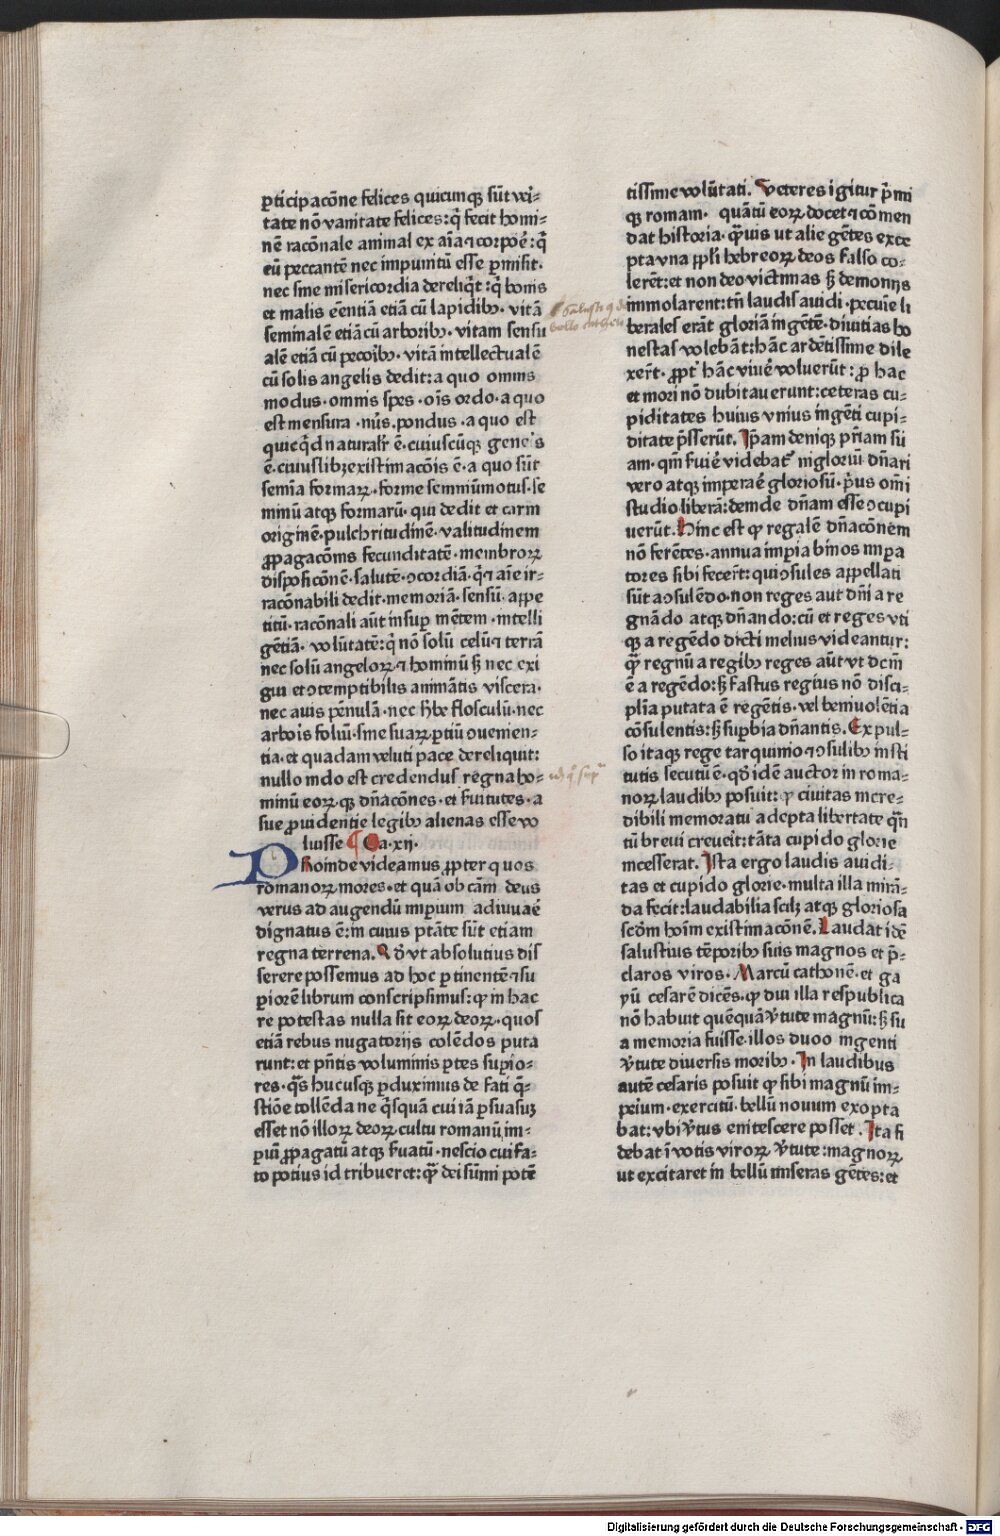 ꝑticipacōne felices quicunqꝫ sūt veri⸗
tate nō vanitate felices: q̄ fecit homi⸗
nē racōnale animal ex aīa ⁊ corpoꝛe: q̄
eū peccantē nec impunitū esse ꝑmisit·
nec sine misericordia dereliq̄t: q̄ bonis
et malis eēntiā etiā cū lapidibꝫ· vitā
seminalē etiā cū arboribꝫ· vitam sensu
alē etiā cū pecoibꝫ· vitā intellectualē
cū solis angelis dedit: a quo omnis
modus· omnis spēs· oīs ordo· a quo
est mensura· nūs· pondus· a quo est
quicq̄d naturalr̄ ē· cuiuscūqꝫ gene͛is
ē· cuiuslibꝫ existimacōis ē· a quo sūt
semīa formaꝝ· forme seminū motus· se
minū atqꝫ formarū· qui dedit et carni
originē· pulchritudinē· valitudinem
ꝓpagacōnis fecunditatē· membroꝝ
disposicōnē· salutē· ↄcordiā· q̄ ⁊ aīe ir⸗
racōnabili dedit· memoriā· sensū· appe
titū· racōnali aūt insuꝑ mētem· intelli
gētiā· volūtatē: q̄ nō solū celū ⁊ terrā
nec solū angeloꝝ ⁊ hominū sꝫ nec exi
gui et ↄtemptibilis animātis viscera·
nec auis pēnulā· nec h̄be flosculū· nec
arbois foliū· sine suaꝝ ꝑtiū ↄuenien⸗
tia· et quadam veluti pace dereliquit:
nullo mdo est credendus regna ho⸗
minū eoꝝqꝫ dn̄acōnes· et s̄uitutes· a
sue ꝓuidentie legibꝫ alienas esse vo
luisse ¶ Ca· xij·
PRoinde videamus ꝓpter quos
romanoꝝ mores· et quā ob cām deus
verus ad augendū impium adiuuaē
dignatus ē: in cuius ptāte sūt etiam
regna terrena. Qd̓ vt absolutius dis
serere possemus ad hoc ꝑtinentē ⁊ su
ꝑiorē librum conscripsimus: ꝙ in hac
re potestas nulla sit eoꝝ deoꝝ· quos
etiā rebus nugatorijs colēdos puta
runt: et pn̄tis voluminis ꝑtes suꝑio⸗
res· q̄s hucusqꝫ ꝑduximus de fati q̄⸗
stiōe tollēda ne q̄squā cui iā ꝑsuasuꝫ
esset nō illoꝝ deoꝝ cultu romanū im⸗
ꝑiū ꝓpagatū atqꝫ s̄uatū· nescio cui fa⸗
to potius id tribueret: q̄ꝫ dei sūmi potē
tissime volūtati. Veteres igitur p̄mi
qꝫ romani· quātū eoꝝ docet ⁊ cōmen
dat historia· q̄ꝫuis ut alie gētes exce
pta vna ppl̓i hebreoꝝ deos falso co⸗
lerēt: et non deo victimas sꝫ demonijs
immolarent: tn̄ laudis auidi· pecuīe li
berales erāt gloriā ingētē· diuitias ho
nestas volebāt: hāc ardētissime dile
xer̄t· ꝓpt̓ hāc viuē voluerūt: ꝓ hac
et mori nō dubitauerunt: ceteras cu⸗
piditates huius vnius ingēti cupi⸗
ditate p̄sserūt. Ip̄am deniqꝫ pr̄iam su
am· qm̄ s̄uiē videbat᷑ ingloriū dn̄ari
vero atqꝫ imperaē gloriosū· p̄us omī
studio liberā: deinde dn̄am esse ↄcupi
uerūt. Hinc est ꝙ regalē dn̄acōnem
nō ferētes· annua imꝑia binos imꝑa
tores sibi fecer̄t: qui ↄsules appellati
sūt a ↄsulēdo· non reges aut dn̄i a re
gnādo atqꝫ dn̄ando: cū et reges vti
qꝫ a regēdo dicti melius videantur:
q̄ꝫ regnū a regibꝫ reges aūt vt dcm̄
ē a regēdo: sꝫ fastus regius nō disci⸗
plīa putata ē regētis· vel beniuolētia
cōsulentis: sꝫ suꝑbia dn̄antis. Expul⸗
so itaqꝫ rege tarquinio ⁊ ↄsulibꝫ insti
tutis secutū ē· qd̓ idē auctor in roma⸗
noꝝ laudibꝫ posuit: ꝙ ciuitas incre⸗
dibili memoratu adepta libertate q̄n
tū breui creuerit: tāta cupido glorie
incesserat. Ista ergo laudis auidi⸗
tas et cupido glorie· multa illa mirā⸗
da fecit: laudabilia scilꝫ atqꝫ gloriosa
scd̓m hoīm existimacōnē. Laudat idē
salustius tēporibꝫ suis magnos et p̄⸗
claros viros. Marcū cathonē· et ga
yū cesarē dicēs· ꝙ diu illa respublica
nō habuit quēquā v̓tute magnū: sꝫ su
a memoria fuisse· illos duoo ingenti
v̓tute diuersis moribꝫ. In laudibus
autē cesaris posuit ꝙ sibi magnū im⸗
peium· exercitū· bellū nouum exopta
bat: vbi v̓tus enitescere posset. Ita fi
debat ī votis viroꝝ v̓tute: magnoꝝ
ut excitaret in bellū miseras gētes: et
Digitalisierung gefördert durch die Deutsche Forschungsgemeinschaft - DFG